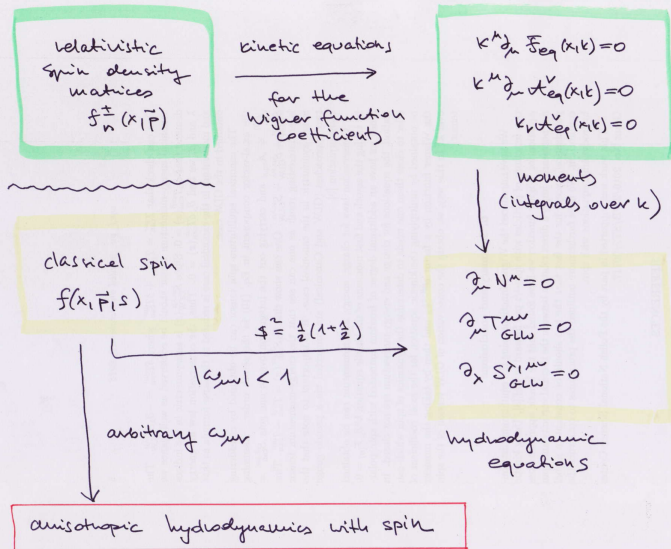 relativistic
spin density
matrices
f±n (x,p⃗)
kinetic equations
for the
Wigner function
coefficients
k^μ ∂_μ F_eq(x,k)=0
k^μ ∂_μ A^ν_eq(x,k)=0
k_ν A^ν_eq(x,k)=0
moments
(integrals over k)
classical spin
f(x,p⃗,s)
$² = 1/2(1+1/2)
|ω_μν| < 1
∂_μ N^μ = 0
∂_μ T^μν_GLW = 0
∂_λ S^λ,μν_GLW = 0
arbitrary ω_μν
hydrodynamic
equations
anisotropic hydrodynamics with spin